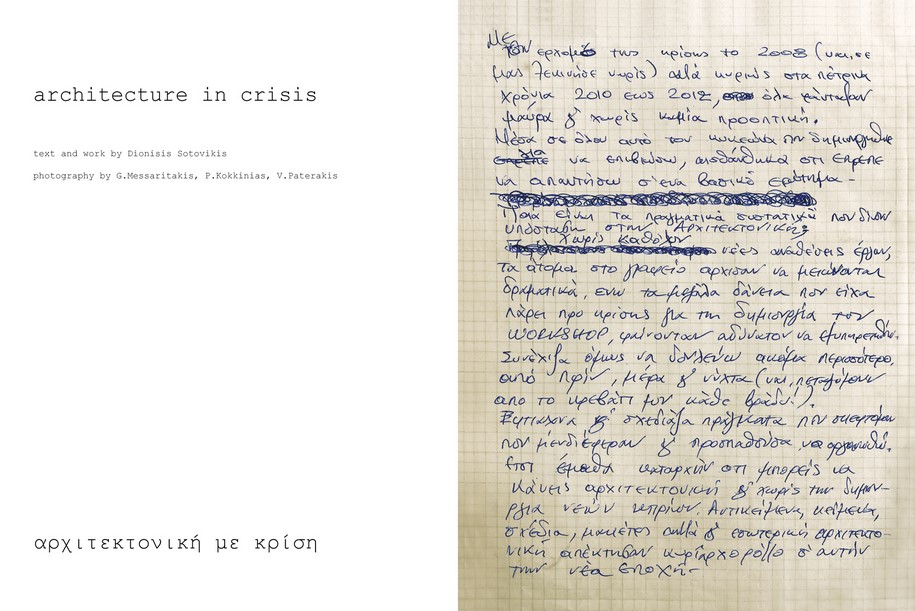 architecture in crisis
text and work by Dionisis Sotovikis
photography by G.Messaritakis, P.Kokkinias, V.Paterakis
αρχιτεκτονική με κρίση
Με
τον ερχομό της κρίσης το 2008 (ναι, σε
μας ξεκινησε νωρίς) αλλά κυρίως στα πέτρινα
χρόνια 2010 εως 2012, όλα φάνταζαν
μαύρα & χωρίς καμία προοπτική.
Μέσα σε όλον αυτό τον κυκεώνα που δημιουργήθηκε
για να επιβιώσω, αισθάνθηκα οτι επρεπε
να απαντήσω σ'ενα βασικό ερώτημα -
Ποια είναι τα πραγματικά συστατικά που δίνουν
υπόσταση στην Αρχιτεκτονική;
Χωρίς καθόλου νέες αναθέσεις έργων,
τα άτομα στο γραφείο αρχισαν να μειώνονται
δραματικά, ενω τα μεγάλα δάνεια που είχα
πάρει προ κρίσης για τη δημιουργία του
WORKSHOP, φαίνονταν αδύνατον να εξυπηρετηθούν.
Συνέχιζα όμως να δουλεύω ακόμα περισσότερο,
από πριν, μέρα & νύχτα (ναι, πεταγόμουν
απο το κρεβάτι μου κάθε βράδυ!).
& σχεδίαζα πράγματα που σκεφτόμουν
που μ'ενδιέφεραν & προσπαθούσα να οργανωθώ.
Ετσι έμαθα καταρχήν οτι μπορείς να
κάνεις αρχιτεκτονική & χωρίς την δημιου-
ργία νέων κτιρίων. Αντικείμενα, κείμενα,
σχέδια, μακέτες αλλά & εσωτερική αρχιτεκτο-
νική απέκτησαν κυρίαρχο ρόλο σ'αυτήν
την νέα εποχή -